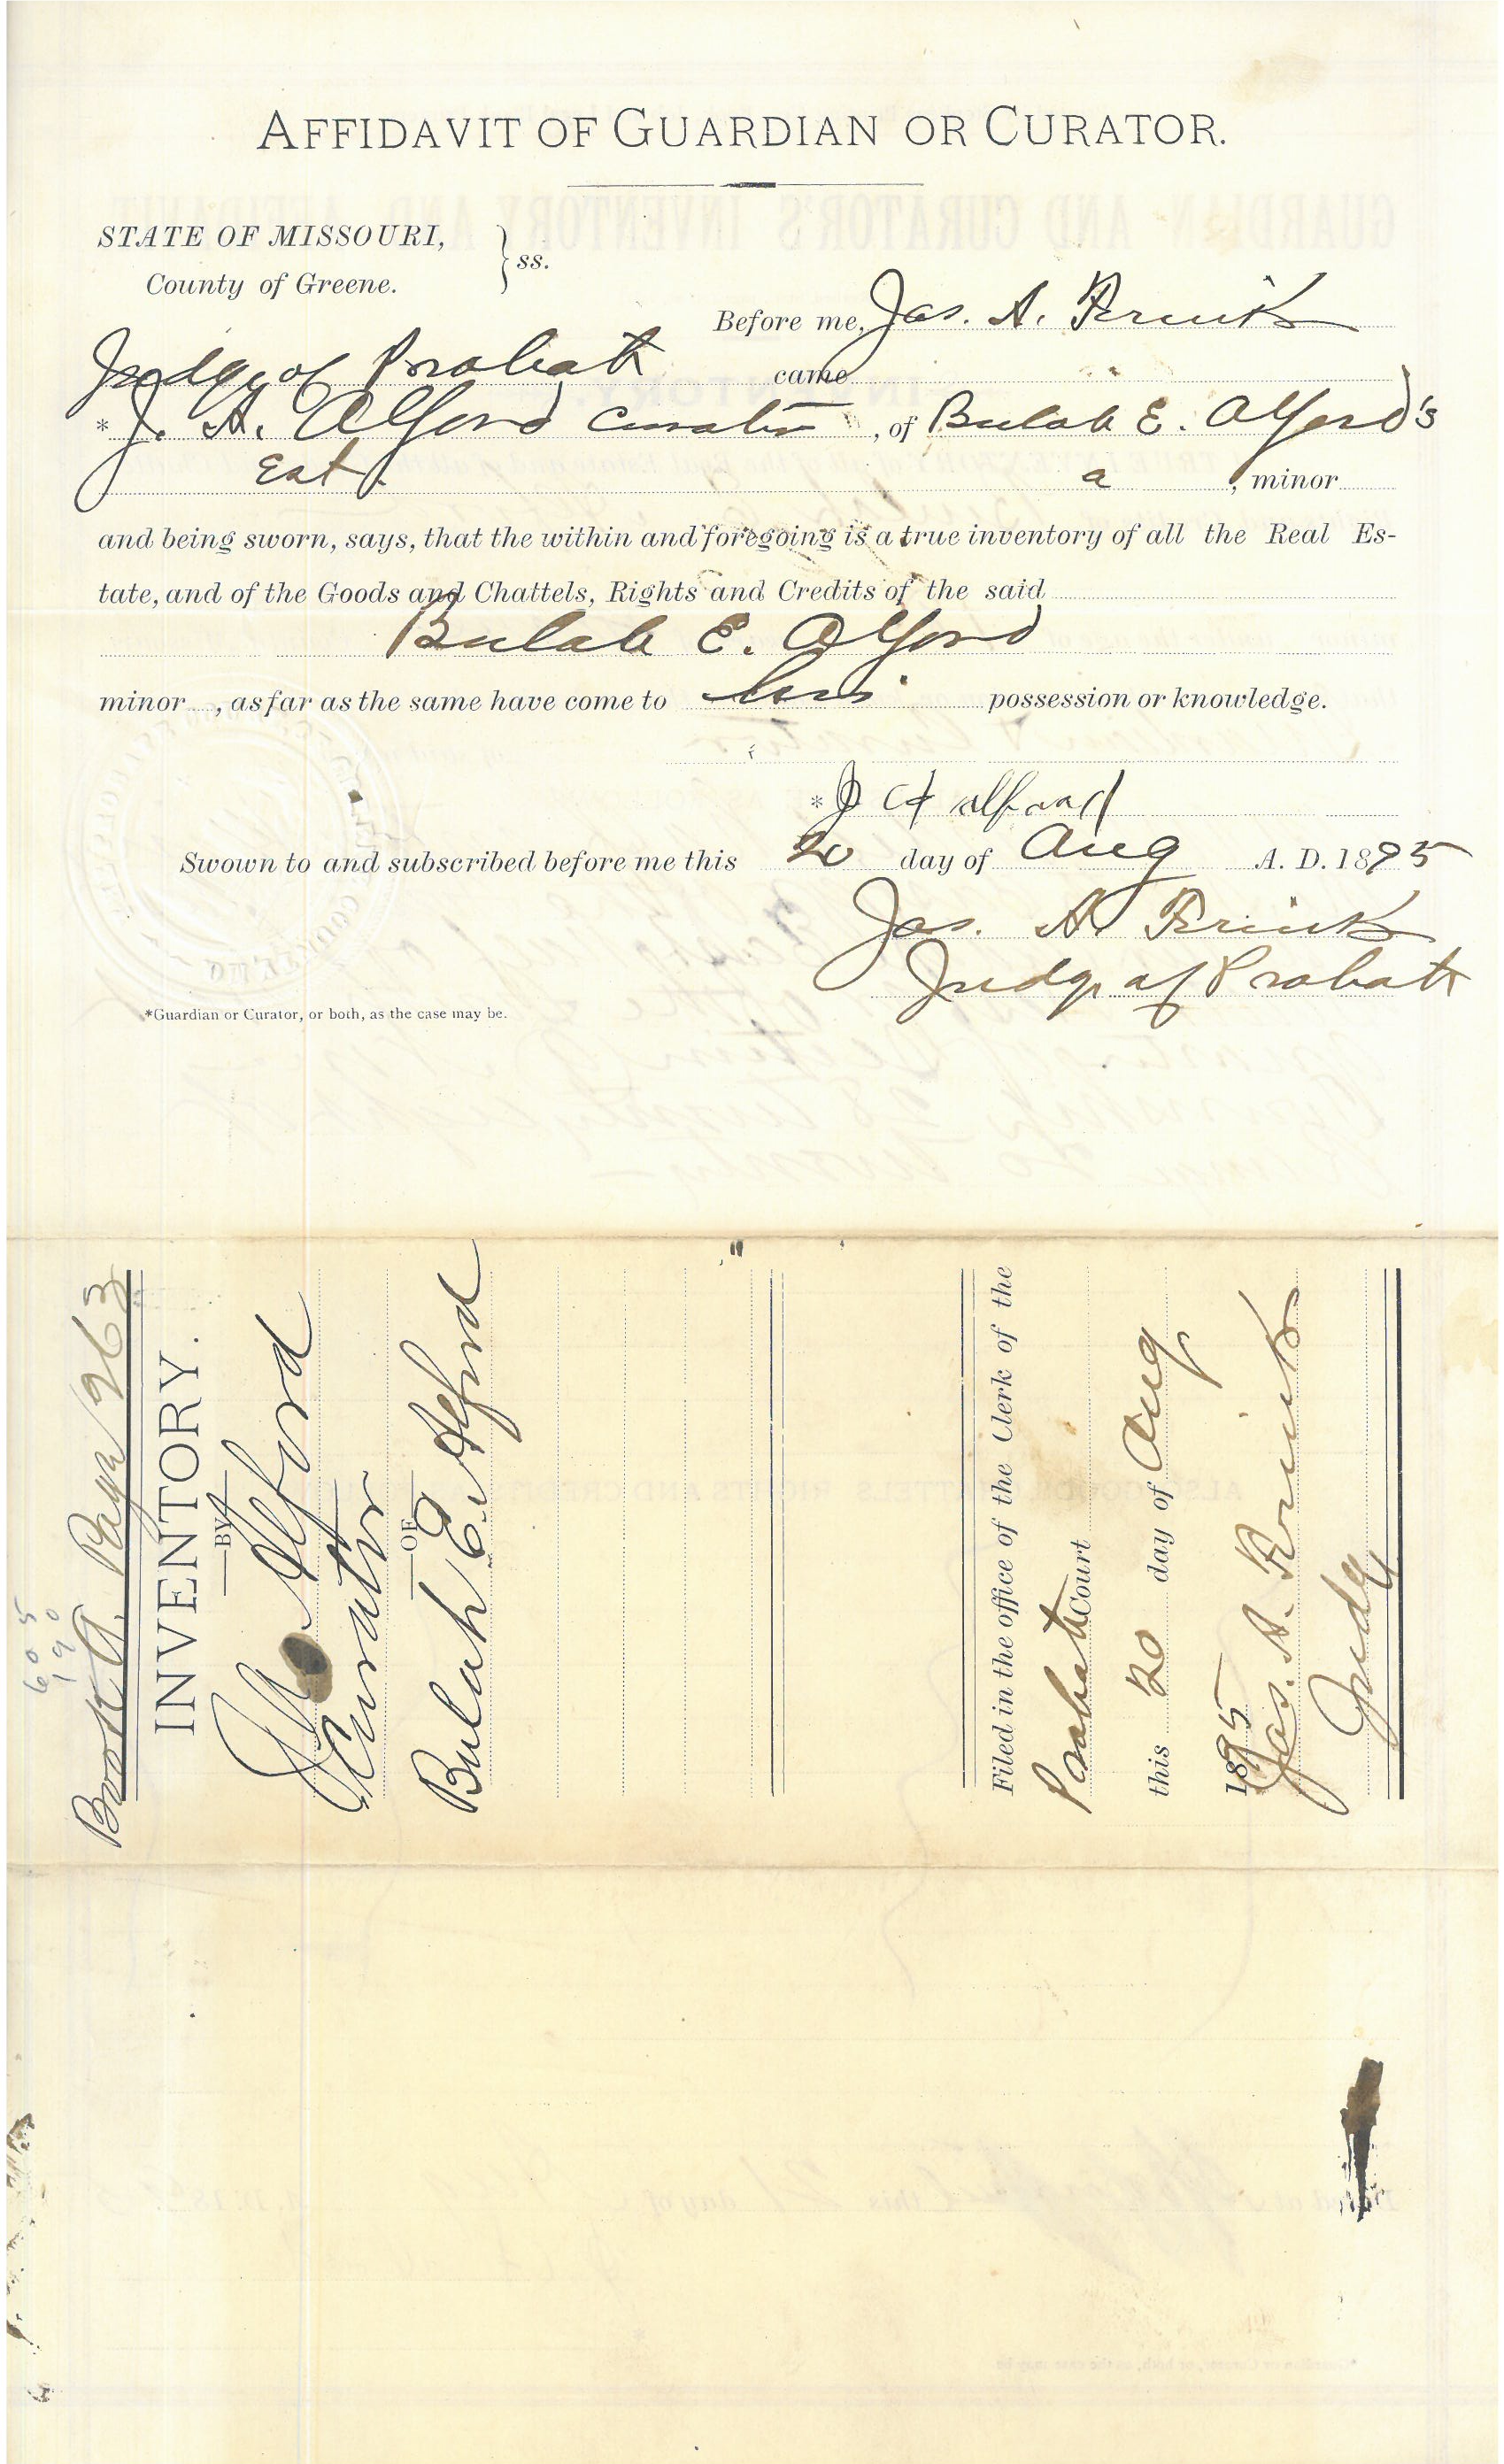 AFFIDAVIT OF GUARDIAN OR CURATOR.
STATE OF MISSOURI,
County of Greene. } ss.
Before me, Jas. A.
Judge of Probate came
* J. A. Alford Curator, of Bulah E. Alford's
Est. a, minor
and being sworn, says, that the within and foregoing is a true inventory of all the Real Es-
tate, and of the Goods and Chattels, Rights and Credits of the said
Bulah E. Alford
minor, as far as the same have come to his possession or knowledge.
* J A Alford
Swown to and subscribed before me this 20 day of Aug A. D. 1895
Jas. A.
Judge of Probate
*Guardian or Curator, or both, as the case may be.
605
190
Book G. Page 263
INVENTORY.
BY
J A Alford
Curator
OF
Bulah E. Alford
Filed in the office of the Clerk of the
Probate Court
this 20 day of Aug
1895
Jas. A.
Judge